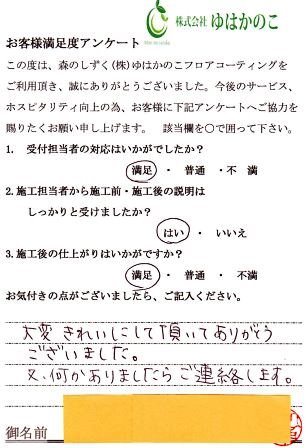 株式会社 ゆはかのこ
お客様満足度アンケート
この度は、森のしずく(株)ゆはかのこフロアコーティングを
ご利用頂き、誠にありがとうございました。今後のサービス、
ホスピタリティ向上の為、お客様に下記アンケートへご協力を
賜りたくお願い申し上げます。 該当欄を〇で囲って下さい。
1. 受付担当者の対応はいかがでしたか?
満足 ・ 普通 ・不 満
2.施工担当者から施工前・施工後の説明は
しっかりと受けましたか?
はい ・ いいえ
3.施工後の仕上がりはいかがですか?
満足 ・ 普通 ・ 不満
お気付きの点がございましたら、ご記入ください。
大変きれいにして頂いてありがとう
ございました。
又、何かありましたらご連絡します。
御名前